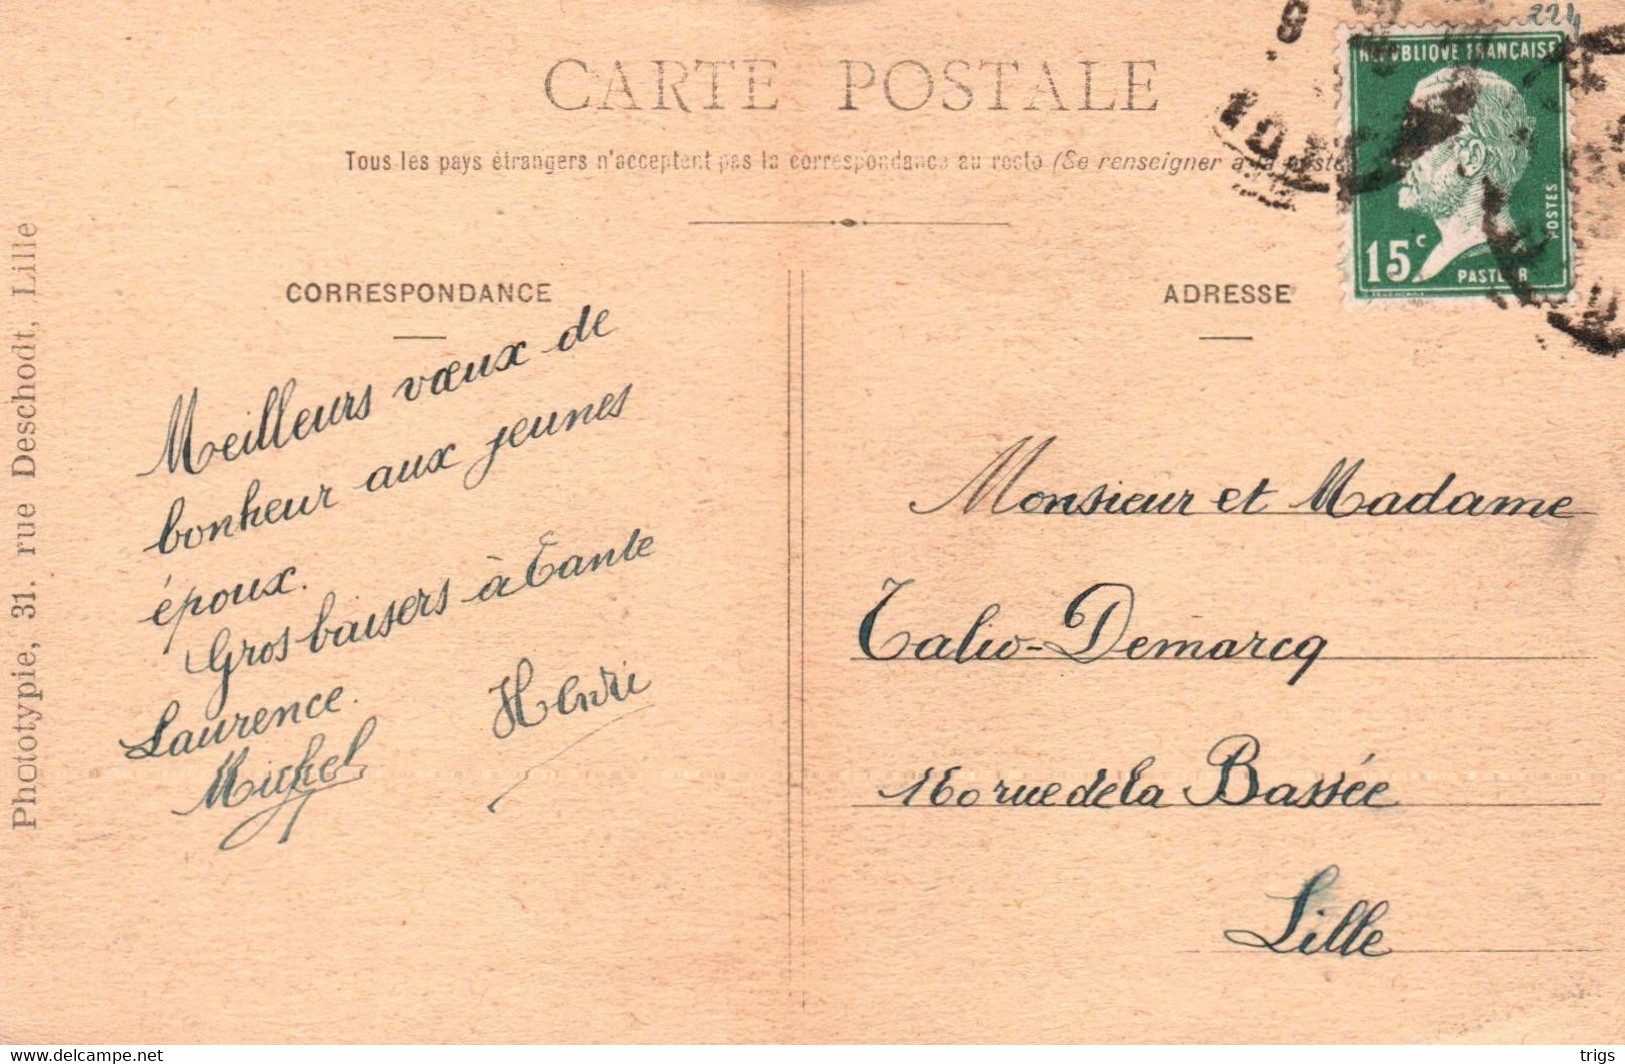 224
CARTE POSTALE
Tous les pays étrangers n'acceptent pas la correspondance au recto (Se renseigner à la poste
REPUBLIQUE FRANÇAISE
POSTES
15c
PASTEUR
Phototypie, 31. rue Deschodt, Lille
CORRESPONDANCE
Meilleurs vœux de
bonheur aux jeunes
époux.
Gros baisers à Tante
Laurence.
Michel Henri
ADRESSE
Monsieur et Madame
Talio-Demarcq
160 rue de la Bassée
Lille
www.delcampe.net
trigs